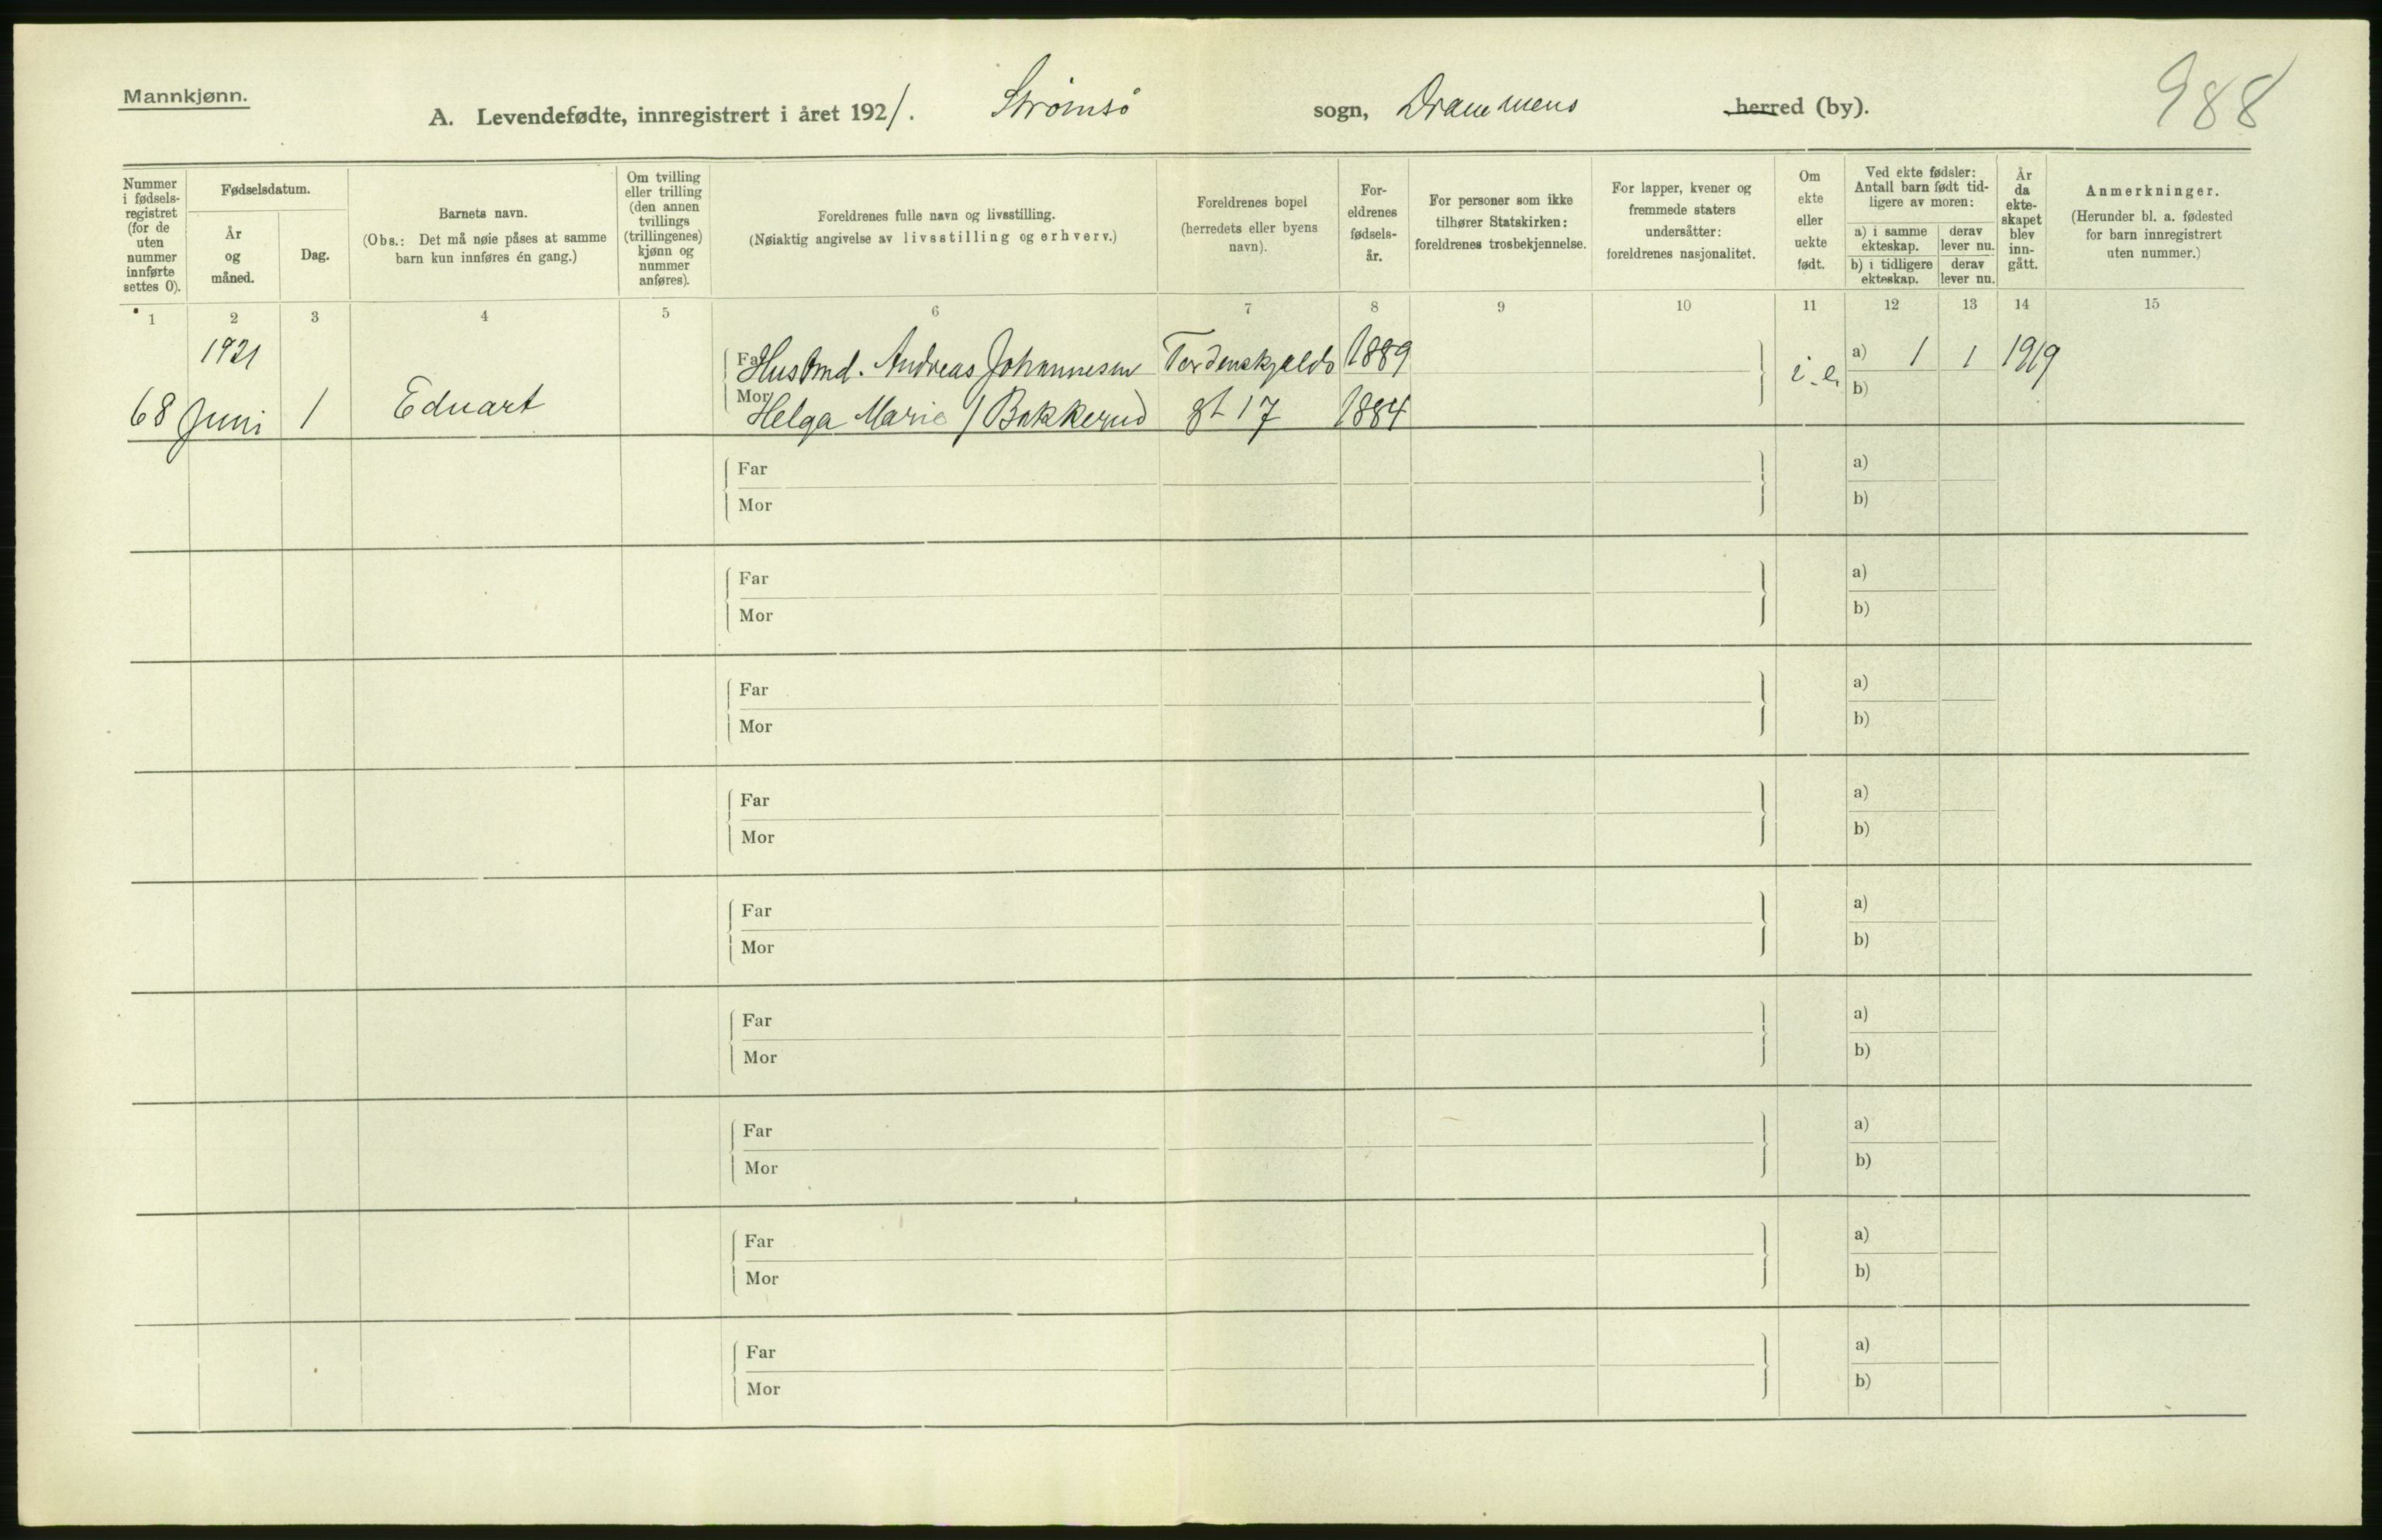 Mannkjønn.
A. Levendefødte, innregistrert i året 1921. Strømsö sogn, Drammens herred (by).
988
Nummer i fødsels-registret (for de uten nummer innførte settes 0).
Fødselsdatum.
År og måned.
Dag.
Barnets navn.
(Obs.: Det må nøie påses at samme barn kun innføres én gang.)
Om tvilling eller trilling (den annen tvillings (trillingenes) kjønn og nummer anføres).
Foreldrenes fulle navn og livsstilling.
(Nøiaktig angivelse av livsstilling og erhverv.)
Foreldrenes bopel (herredets eller byens navn).
For-eldrenes fødsels-år.
For personer som ikke tilhører Statskirken: foreldrenes trosbekjennelse.
For lapper, kvener og fremmede staters undersåtter: foreldrenes nasjonalitet.
Om ekte eller uekte født.
Ved ekte fødsler: Antall barn født tid-ligere av moren:
a) i samme ekteskap. derav lever nu.
b) i tidligere ekteskap. derav lever nu.
År da ekte-skapet blev inn-gått.
Anmerkninger.
(Herunder bl. a. fødested for barn innregistrert uten nummer.)
1 2 3 4 5 6 7 8 9 10 11 12 13 14 15
1921 Far Andreas Johannesen Tordenskjolds 1889 i.e. a) 1 1 1919
68 Juni 1 Eduart Mor Helga Marie / Bakkerud gt 17 1884 b)
Far a)
Mor b)
Far a)
Mor b)
Far a)
Mor b)
Far a)
Mor b)
Far a)
Mor b)
Far a)
Mor b)
Far a)
Mor b)
Far a)
Mor b)
Far a)
Mor b)